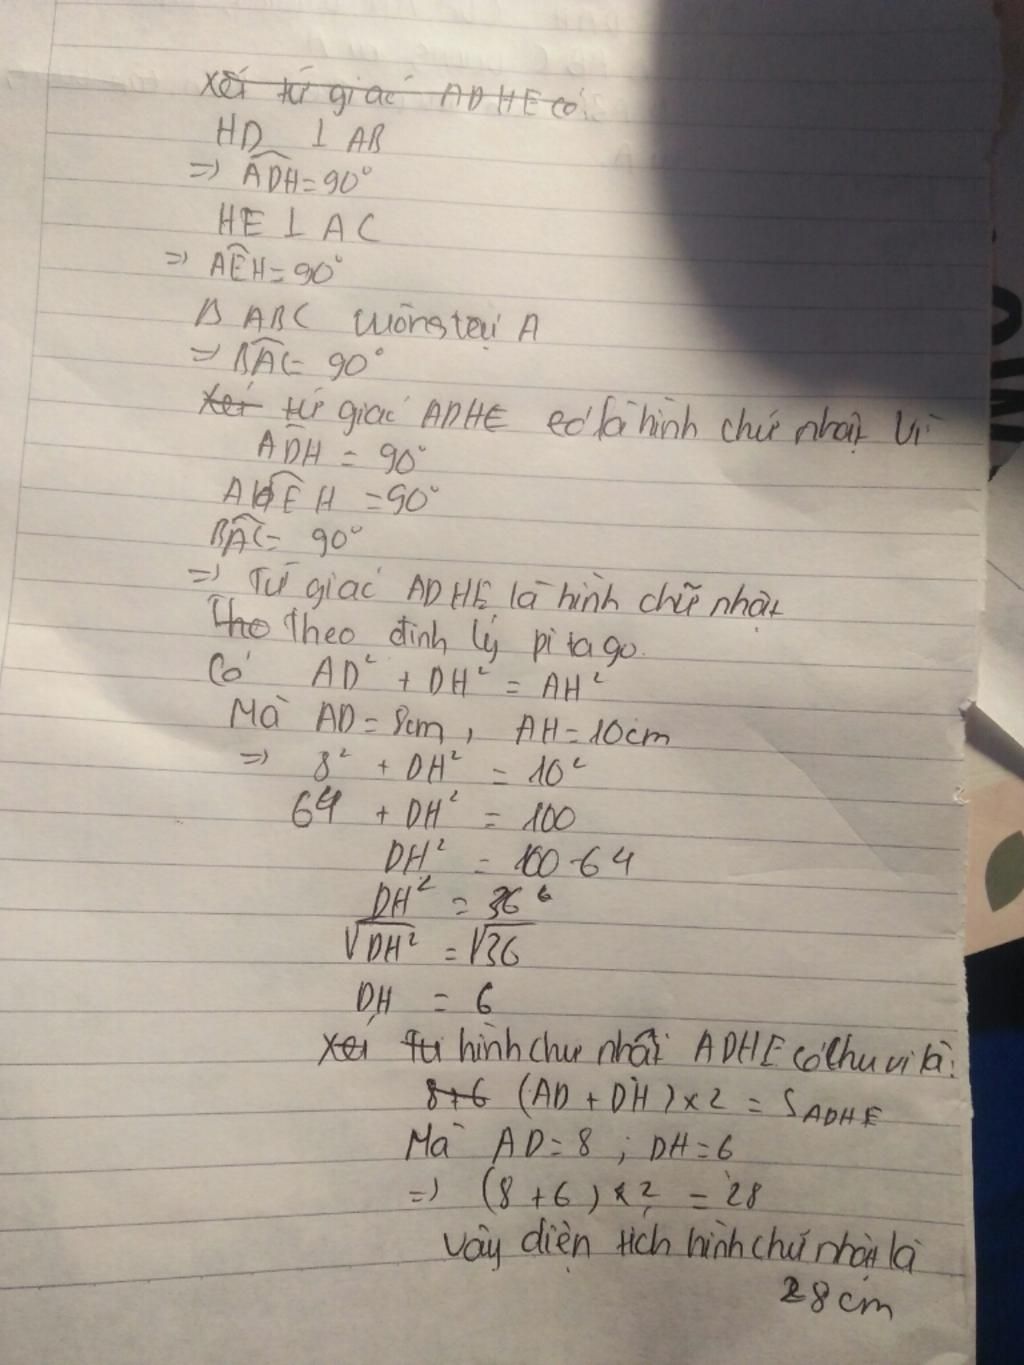 Xét tứ giác ADHE có:
HD ⊥ AB
=> ADH = 90°
HE ⊥ AC
=> AEH = 90°
Δ ABC vuông tại A
=> BAC = 90°
Xét tứ giác ADHE có là hình chữ nhật vì
ADH = 90°
AEH = 90°
BAC = 90°
=> Tứ giác ADHE là hình chữ nhật
Tho Theo định lý pi ta go.
Có AD² + DH² = AH²
Mà AD = 8cm, AH = 10cm
=> 8² + DH² = 10²
64 + DH² = 100
DH² = 100 - 64
DH² = 36
√DH² = √36
DH = 6
Xét tứ hình chư nhật ADHE có chu vi là:
8+6 (AD + DH) × 2 = S ADHE
Mà AD = 8 ; DH = 6
=> (8 + 6) × 2 = 28
Vậy diện tích hình chứ nhật là
28cm